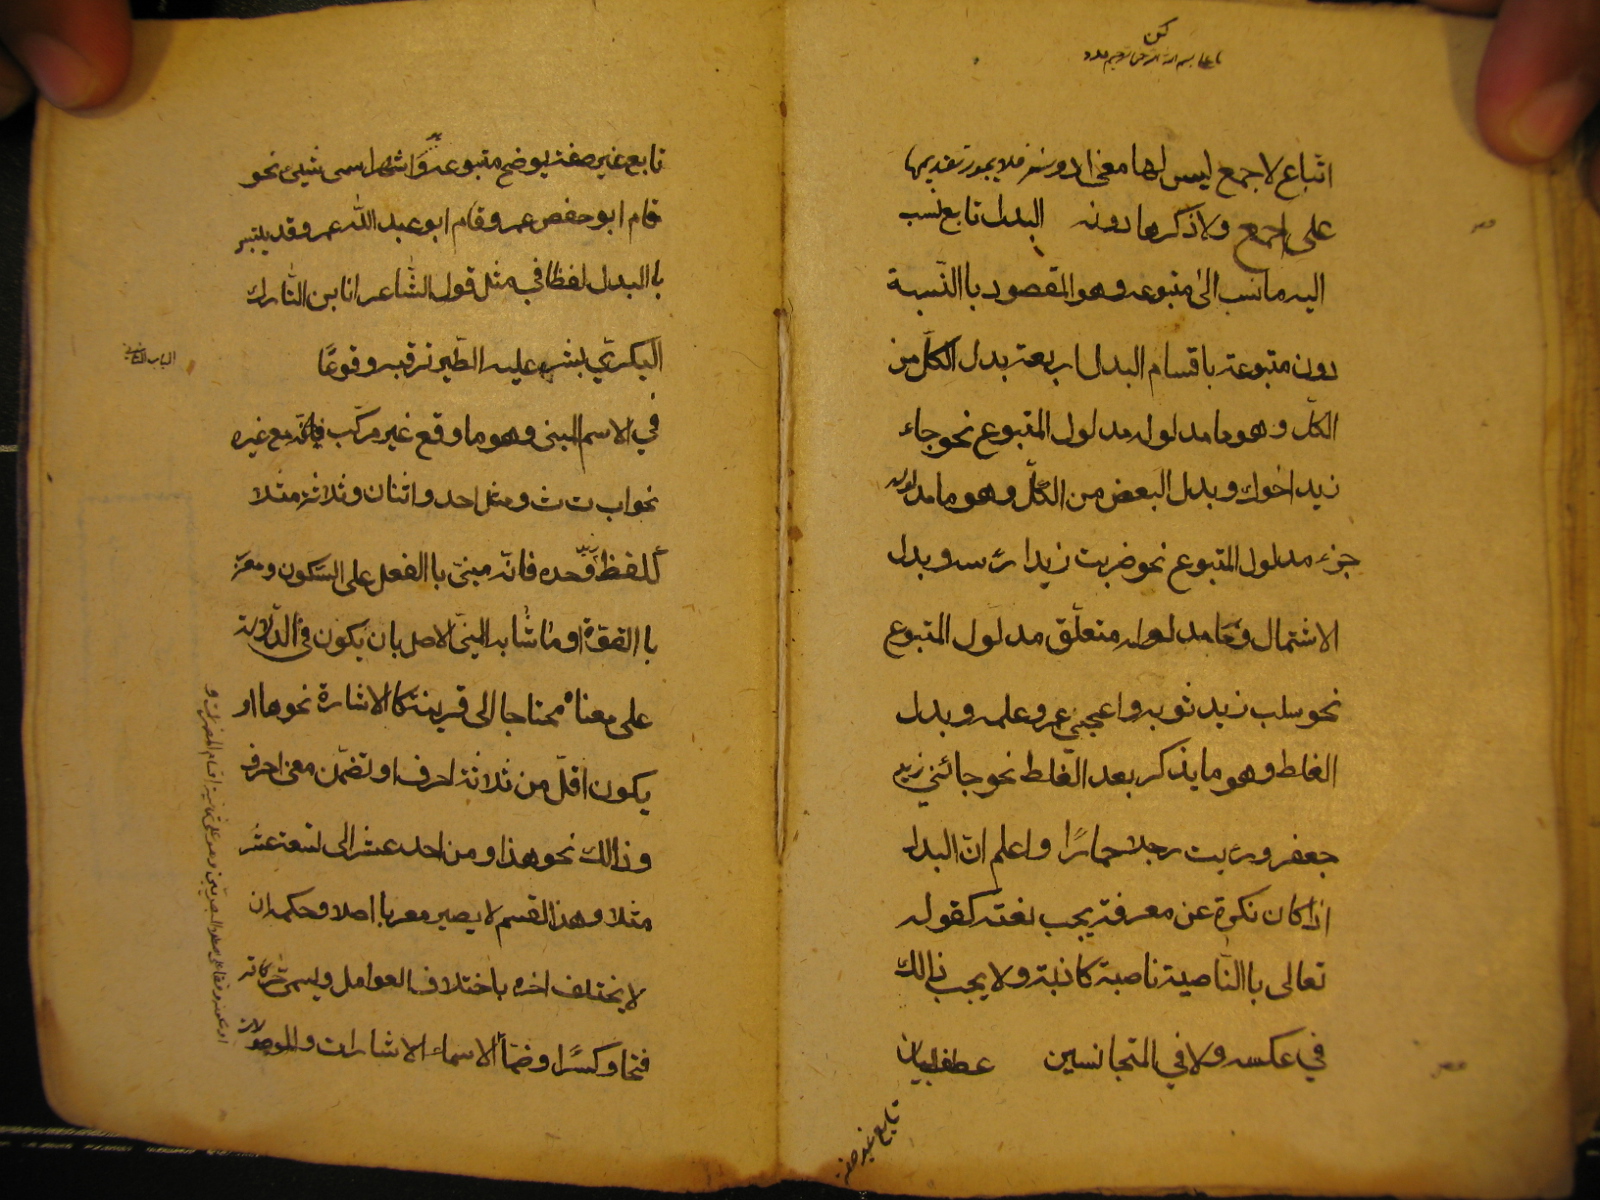 اتباع لاجمع ليس لها معنى بدونه فلا يجوز تقديمها
على اجمع ولا ذكرها دونه البدل تابع نسب
اليه ما نسب الى متبوعه وهو المقصود باالنّسبة
دون متبوعه باقسام البدل اربعة بدل الكلّ من
الكلّ وهو ما مدلوله مدلول المتبوع نحو جاء
زيد اخوك وبدل البعض من الكلّ وهو ما مدلوله
جزء مدلول المتبوع نحو ضربت زيدا رئسه وبدل
الاشتمال وهو ما مدلوله متعلّق مدلول المتبوع
نحو سلب زيد ثوبه واعجبني عمرو علمه وبدل
الغلط وهو ما يذكر بعد الغلط نحو جائني زيد
جعفر ورئيت رجلا حمارًا واعلم انّ البدل
اذا كان نكرة عن معرفة يجب نعته كقوله
تعالى باالنّاصية ناصية كاذبة ولا يجب ذالك
في عكسه ولا في المتجانسين عطف البيان
تابع غير صفة
تابع غير صفة يوضح متبوعه وهو اشهر اسمى شيئ نحو
قام ابو حفص عمر وقام ابو عبد اللّه عمر وقد يلتبس
باالبدل لفظا في مثل قول الشّاعر انا بن التّارك
البكريّ بشر عليه الطّير ترقبه وقوعًا
الباب الثاني
في الاسم المبنى وهو ما وقع غير مركّب مع غيره
نحو ا ب ت ث ومثل احد واثنان وثلاثة مثلا
كلفظ زيد وحده فانّه مبنىّ باالفعل على السّكون ومعرب
باالقوّة او ما شابه المبنىّ الاصل بان يكون في الدّلالة
على معناه محتاجا الى قرينة كاالاشارة نحو ها او
يكون اقلّ من ثلاثة احرف او تضمّن معنى احرف
وذالك نحو هذا ومن احد عشر الى تسعة عشر
مثلا وهذا القسم لا يصير معربا اصلا وحكمه ان
لا يختلف اخره باختلاف العوامل ويسمّى حركاته
فتحا وكسرًا وضمّا الاسماء الاشارات والموصولات